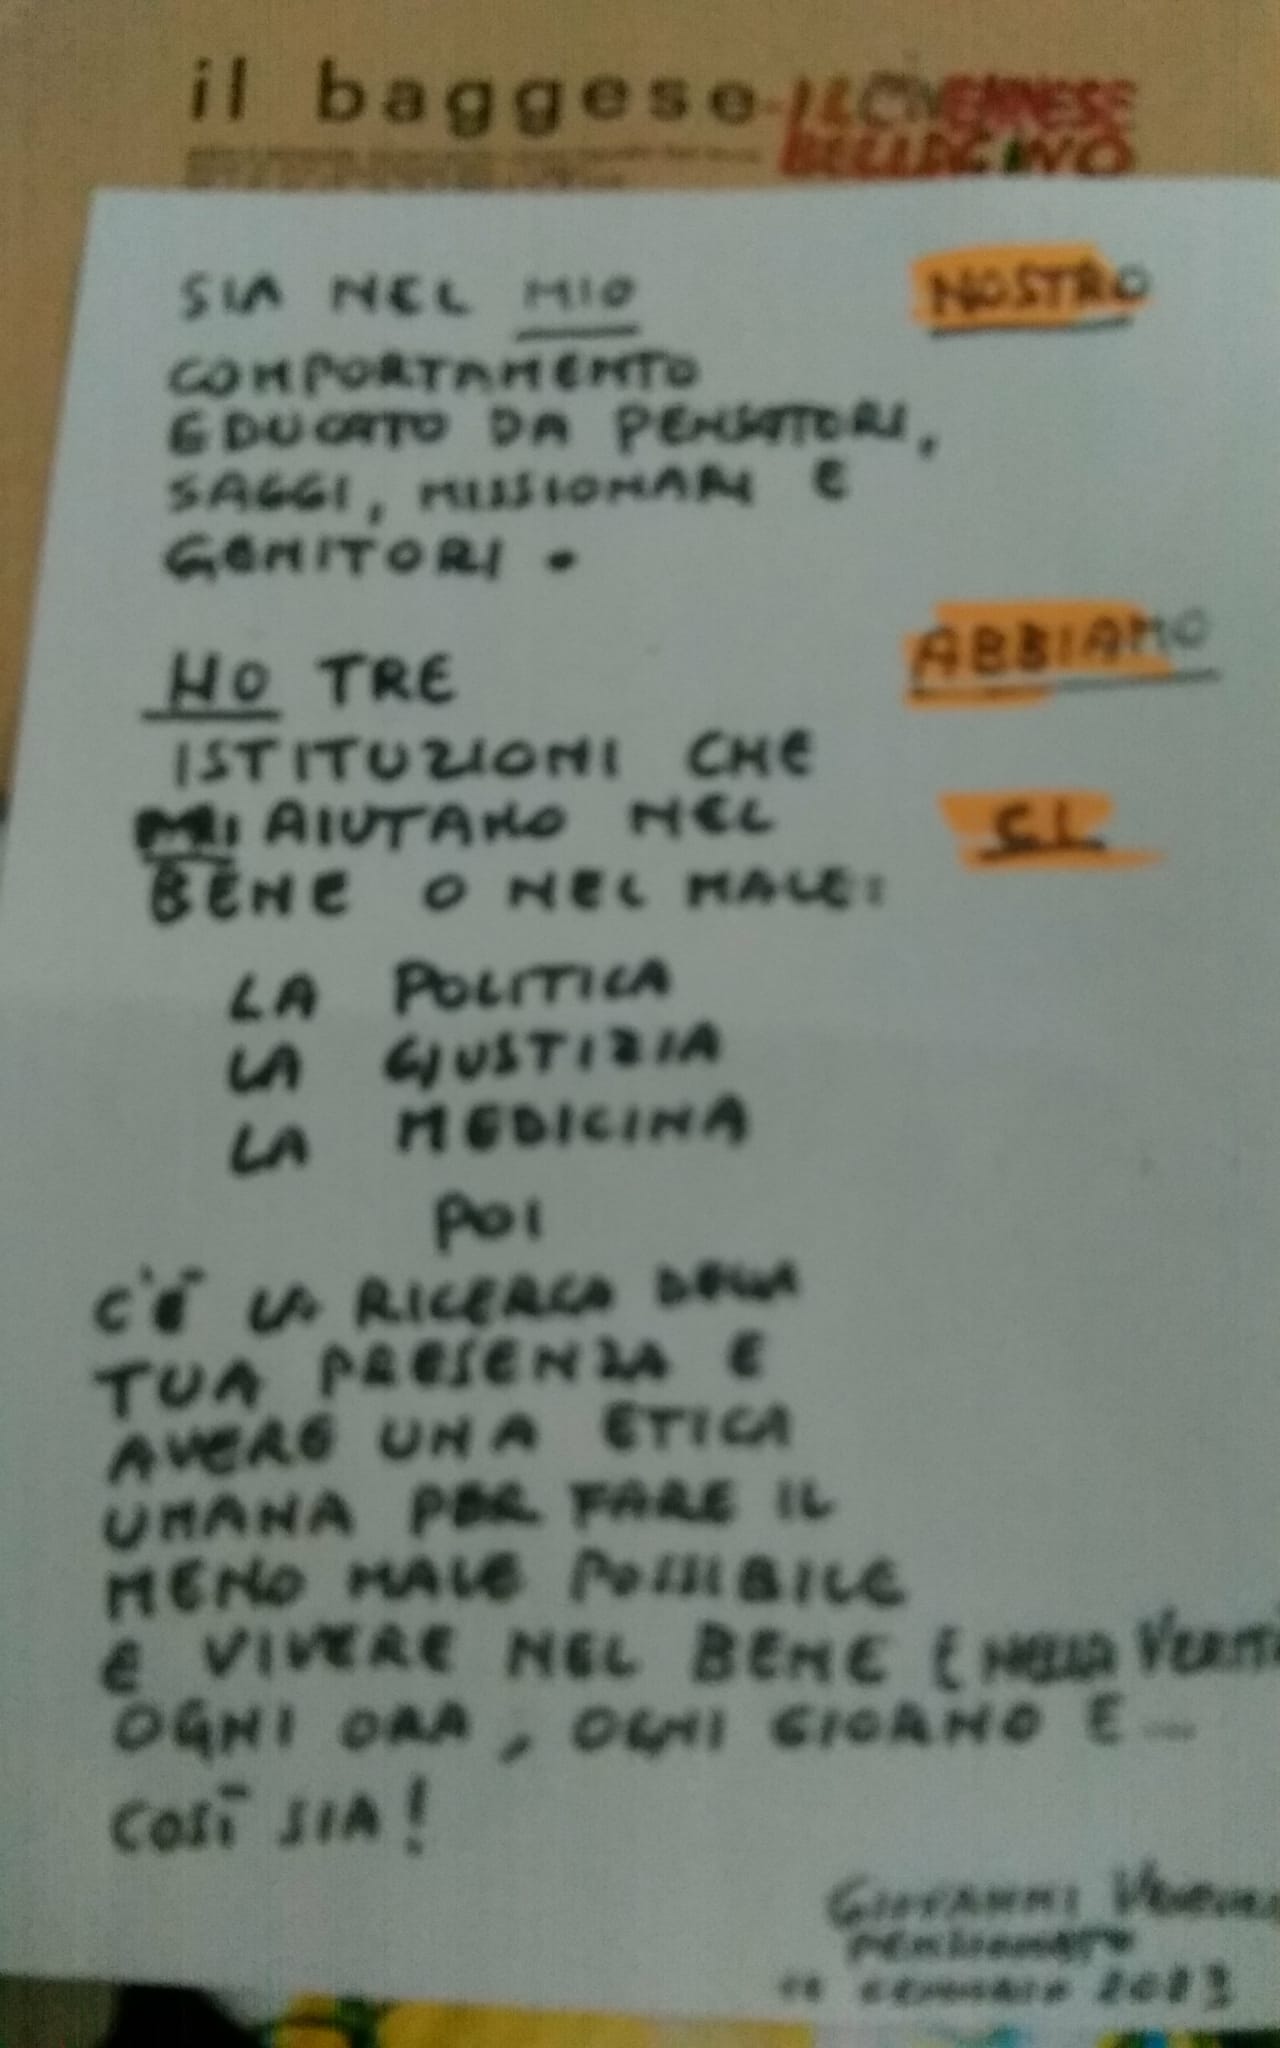 il baggese
SIA NEL MIO NOSTRO
COMPORTAMENTO
EDUCATO DA PENSATORI,
SAGGI, MISSIONARI E
GENITORI.
HO TRE ABBIAMO
ISTITUZIONI CHE
MI AIUTANO NEL CI
BENE O NEL MALE:
LA POLITICA
LA GIUSTIZIA
LA MEDICINA
POI
C'È LA RICERCA DELLA
TUA PRESENZA E
AVERE UNA ETICA
UMANA PER FARE IL
MENO MALE POSSIBILE
E VIVERE NEL BENE E NELLA
OGNI ORA, OGNI GIORNO E...
COSÌ SIA!
GIOVANNI
PENSIONATO
GENNAIO 2023